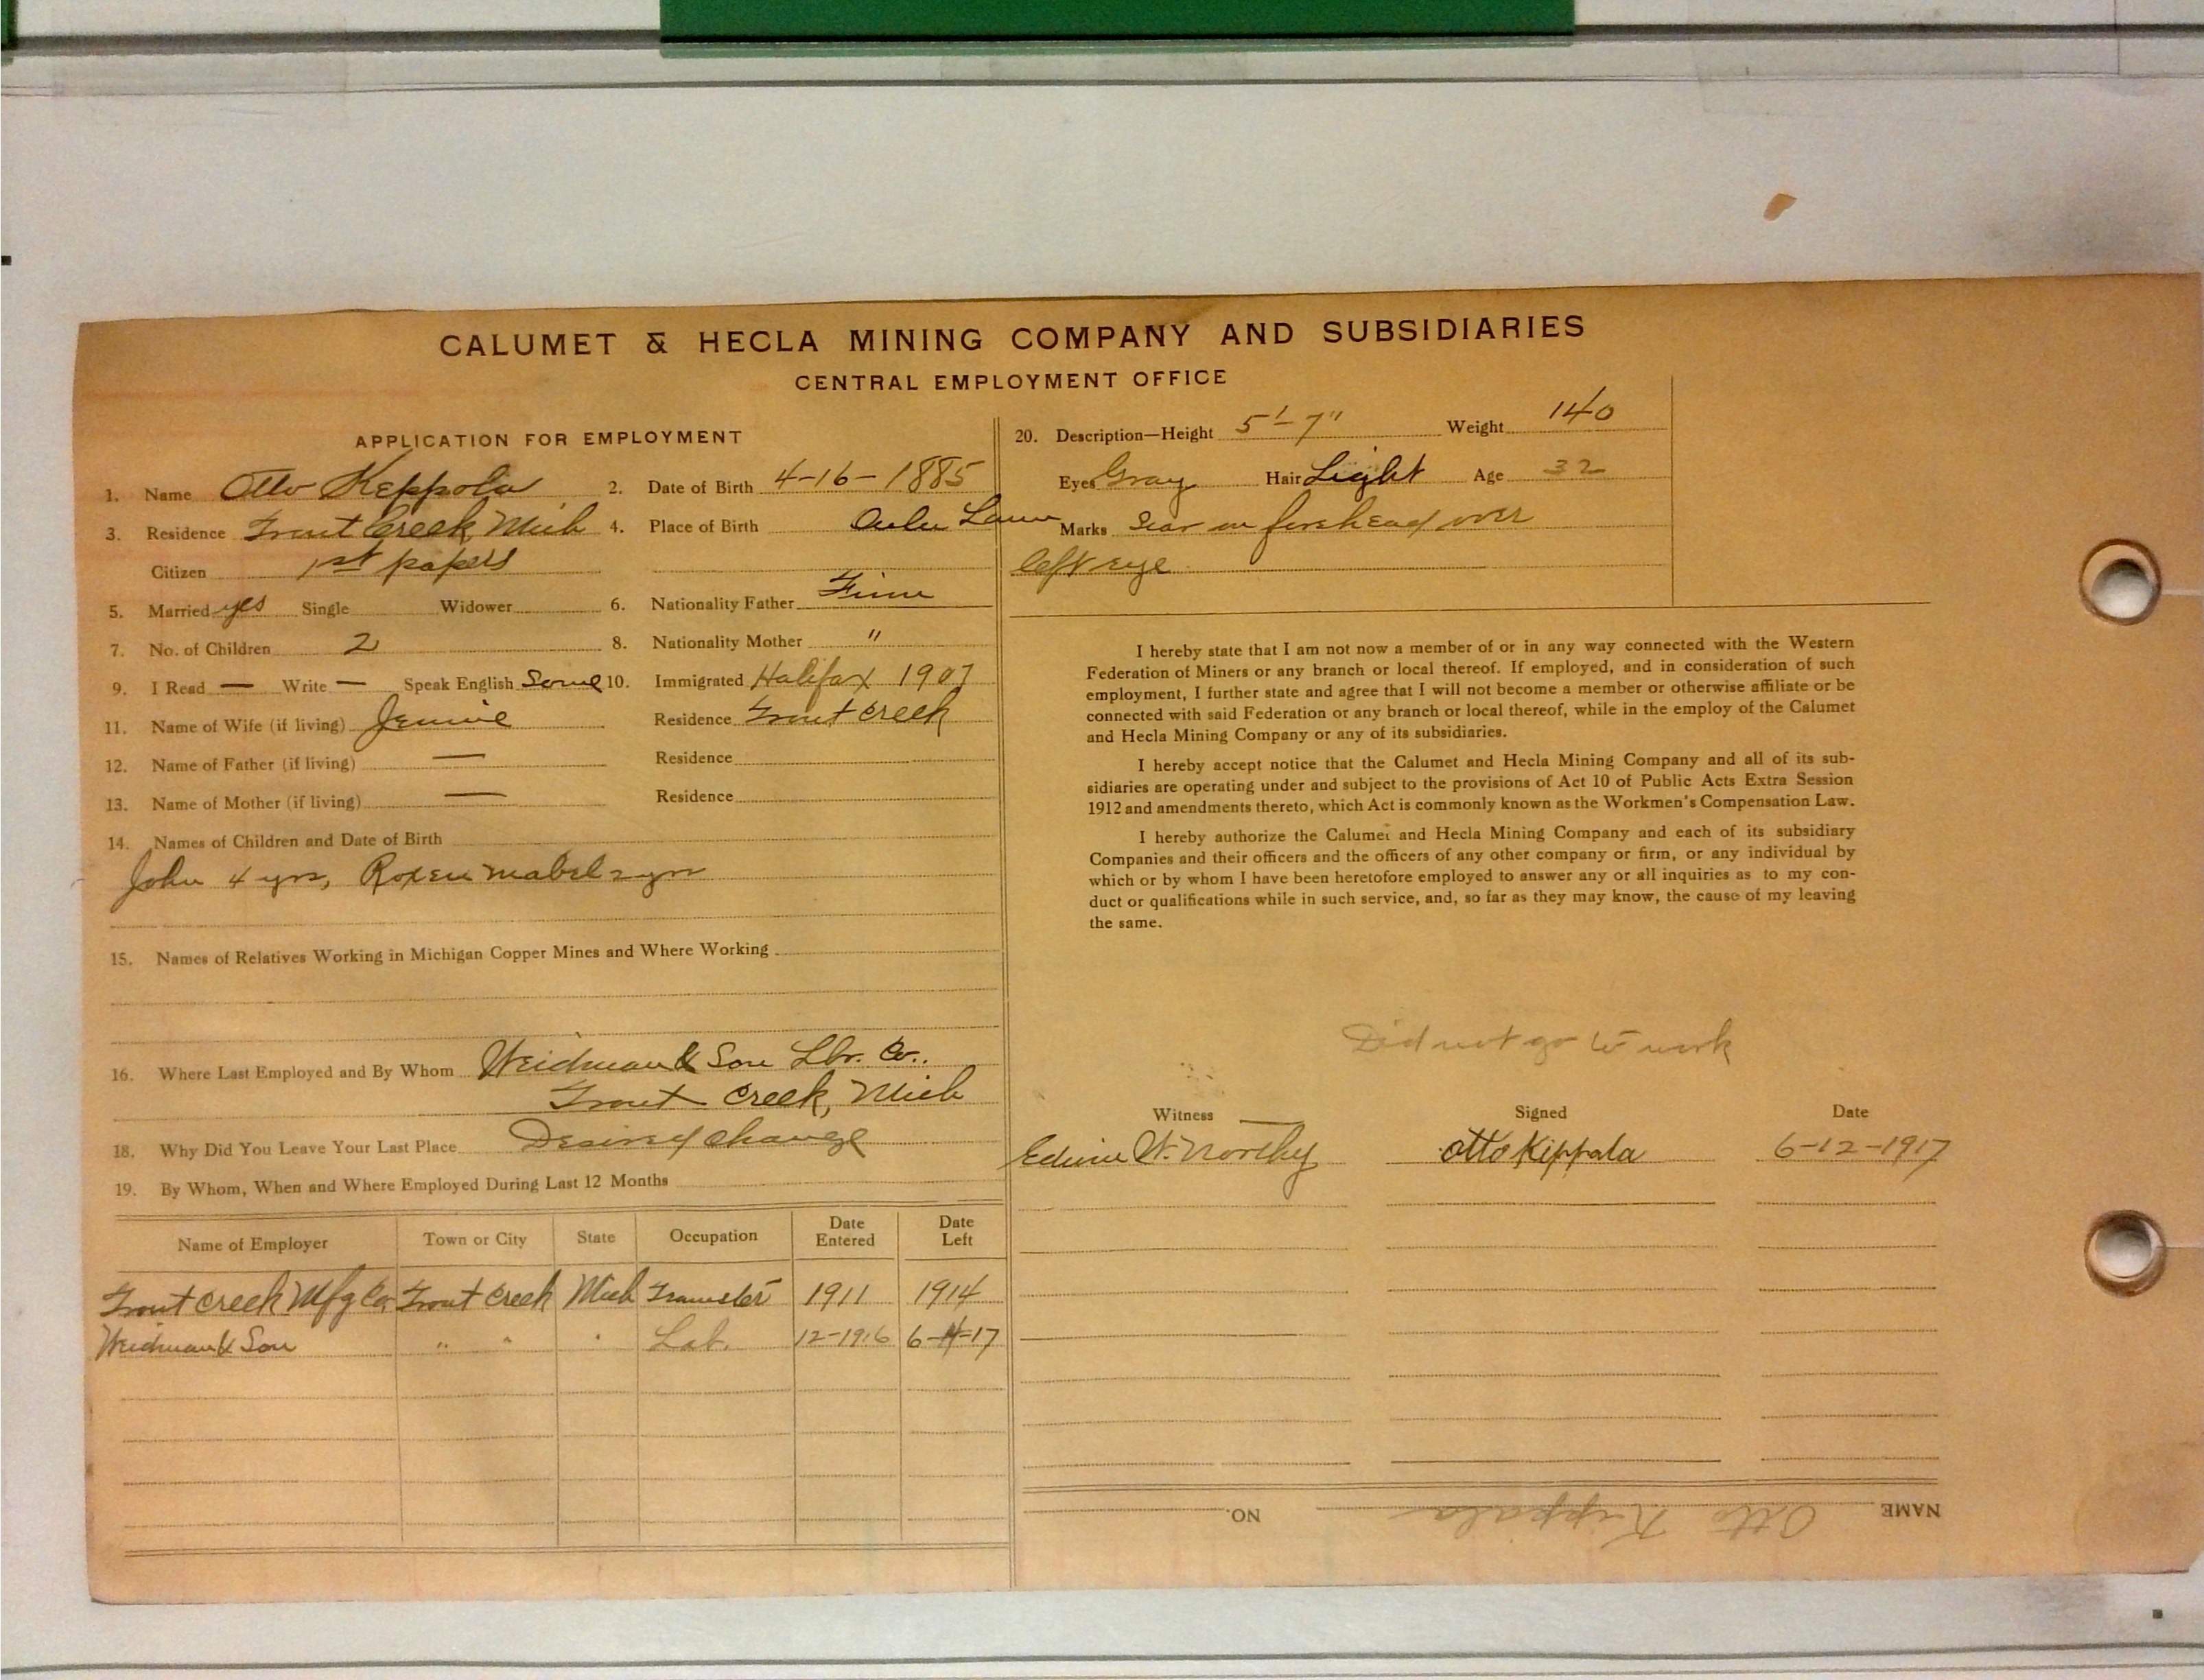 CALUMET & HECLA MINING COMPANY AND SUBSIDIARIES
CENTRAL EMPLOYMENT OFFICE
APPLICATION FOR EMPLOYMENT
1. Name Otto Keppola 2. Date of Birth 4-16-1885
3. Residence Trout Creek, Mich 4. Place of Birth Oulu
Citizen 1st papers
5. Married yes Single Widower 6. Nationality Father Finn
7. No. of Children 2 8. Nationality Mother "
9. I Read — Write — Speak English Some 10. Immigrated Halifax 1907
11. Name of Wife (if living) Jennie Residence Trout Creek
12. Name of Father (if living) — Residence
13. Name of Mother (if living) — Residence
14. Names of Children and Date of Birth
John 4 yrs, Mabel 2 yrs
15. Names of Relatives Working in Michigan Copper Mines and Where Working
16. Where Last Employed and By Whom Weidman & Son Lbr. Co.
Trout Creek, Mich
18. Why Did You Leave Your Last Place Desired change
19. By Whom, When and Where Employed During Last 12 Months
Name of Employer Town or City State Occupation Date Entered Date Left
Trout Creek Mfg Co. Trout Creek Mich Teamster 1911 1914
Weidman & Son " " " Lab. 12-1916 6-4-17
20. Description—Height 5'-7" Weight 140
Eyes Gray Hair Light Age 32
Marks Scar on forehead over
left eye
I hereby state that I am not now a member of or in any way connected with the Western
Federation of Miners or any branch or local thereof. If employed, and in consideration of such
employment, I further state and agree that I will not become a member or otherwise affiliate or be
connected with said Federation or any branch or local thereof, while in the employ of the Calumet
and Hecla Mining Company or any of its subsidiaries.
I hereby accept notice that the Calumet and Hecla Mining Company and all of its sub-
sidiaries are operating under and subject to the provisions of Act 10 of Public Acts Extra Session
1912 and amendments thereto, which Act is commonly known as the Workmen's Compensation Law.
I hereby authorize the Calumet and Hecla Mining Company and each of its subsidiary
Companies and their officers and the officers of any other company or firm, or any individual by
which or by whom I have been heretofore employed to answer any or all inquiries as to my con-
duct or qualifications while in such service, and, so far as they may know, the cause of my leaving
the same.
Did not go to work
Witness Signed Date
Edwin W. Northy Otto Kippala 6-12-1917
NAME Otto Kippala NO.